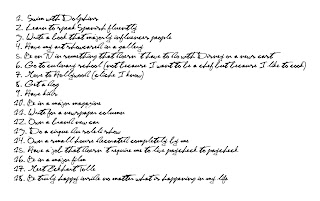 1. Swim with Dolphins
2. Learn to speak Spanish fluently
3. Write a book that majorly influences people
4. Have my art showcased in a gallery
5. Be on TV in something that doesn't have to do with Disney or a news cast
6. Go to culinary school (not because I want to be a chef but because I like to cook)
7. Move to Hollywood (cliche I know)
8. Get a dog
9. Have kids
10. Be in a major magazine
11. Write for a newspaper column
12. Own a brand new car
13. Do a cirque du soleil show
14. Own a small house decorated completely by me
15. Have a job that doesn't require me to live paycheck to paycheck
16. Be in a major film
17. Meet Eckhart Tolle
18. Be truly happy inside no matter what is happening in my life